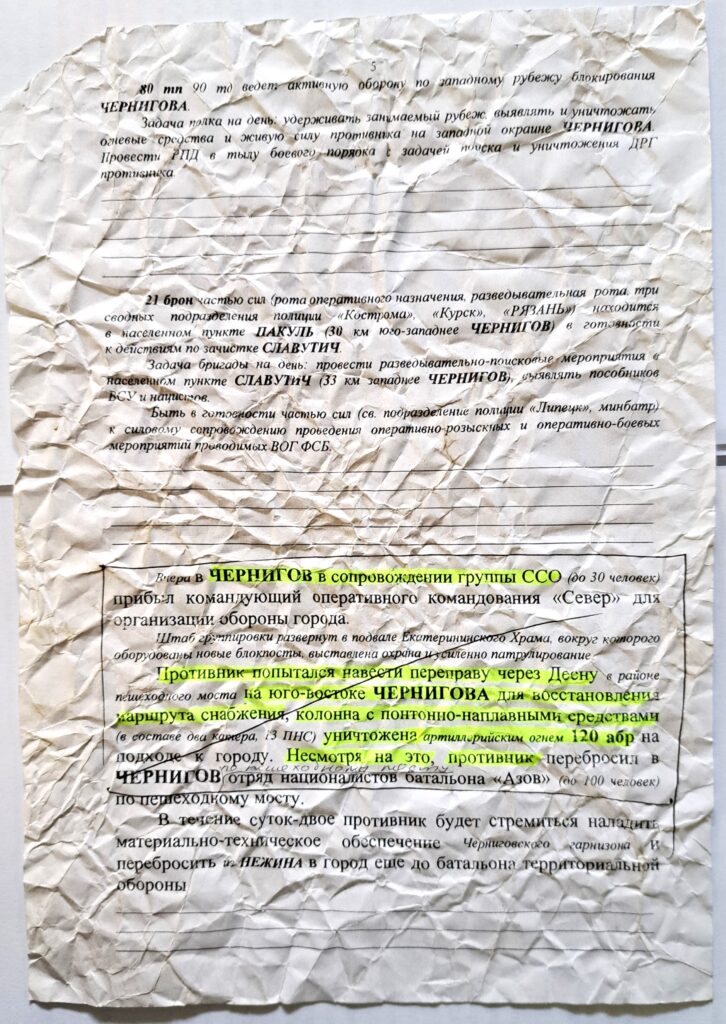 5
80 тп 90 тд ведет активную оборону по западному рубежу блокирования
ЧЕРНИГОВА.
Задача полка на день: удерживать занимаемый рубеж, выявлять и уничтожать
огневые средства и живую силу противника на западной окраине ЧЕРНИГОВА.
Провести РПД в тылу боевого порядка с задачей поиска и уничтожения ДРГ
противника.
21 брон частью сил (рота оперативного назначения, разведывательная рота, три
сводных подразделения полиции «Кострома», «Курск», «РЯЗАНЬ») находится
в населенном пункте ПАКУЛЬ (30 км юго-западнее ЧЕРНИГОВ) в готовности
к действиям по зачистке СЛАВУТИЧ.
Задача бригады на день: провести разведывательно-поисковые мероприятия в
населенном пункте СЛАВУТИЧ (33 км западнее ЧЕРНИГОВ), выявлять пособников
ВСУ и нацистов.
Быть в готовности частью сил (св. подразделение полиции «Липецк», минбатр)
к силовому сопровождению проведения оперативно-розыскных и оперативно-боевых
мероприятий проводимых ВОГ ФСБ.
Вчера в ЧЕРНИГОВ в сопровождении группы ССО (до 30 человек)
прибыл командующий оперативного командования «Север» для
организации обороны города.
Штаб группировки развернут в подвале Екатерининского Храма, вокруг которого
оборудованы новые блокпосты, выставлена охрана и усиленно патрулирование.
Противник попытался навести переправу через Десну в районе
пешеходного моста на юго-востоке ЧЕРНИГОВА для восстановления
маршрута снабжения, колонна с понтонно-наплавными средствами
(в составе два катера, 13 ПНС) уничтожена артиллерийским огнем 120 абр на
подходе к городу. Несмотря на это, противник перебросил в
по пешеходному мосту
ЧЕРНИГОВ отряд националистов батальона «Азов» (до 100 человек)
по пешеходному мосту.
В течение суток-двое противник будет стремиться наладить
материально-техническое обеспечение Черниговского гарнизона и
перебросить из НЕЖИНА в город еще до батальона территориальной
обороны